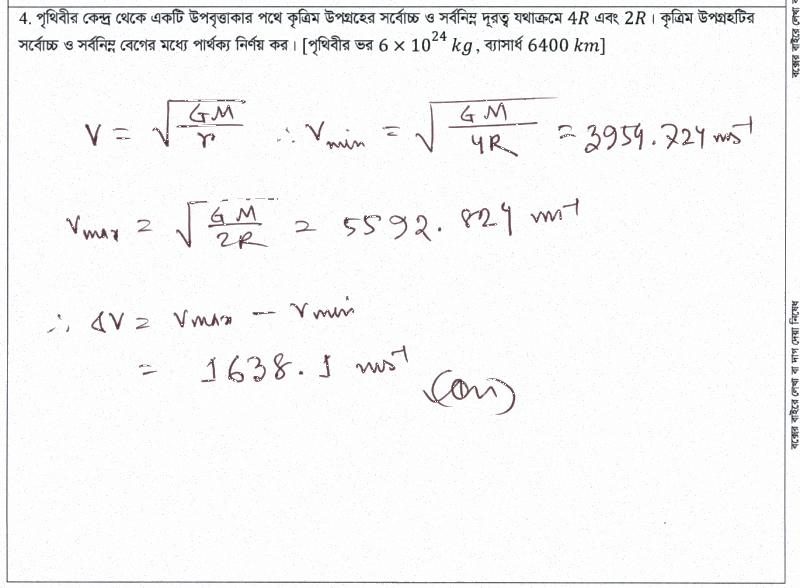 4. পৃথিবীর কেন্দ্র থেকে একটি উপবৃত্তাকার পথে কৃত্রিম উপগ্রহের সর্বোচ্চ ও সর্বনিম্ন দূরত্ব যথাক্রমে 4R এবং 2R। কৃত্রিম উপগ্রহটির
সর্বোচ্চ ও সর্বনিম্ন বেগের মধ্যে পার্থক্য নির্ণয় কর। [পৃথিবীর ভর 6 × 10²⁴ kg, ব্যাসার্ধ 6400 km]
V = √(GM/r) ∴ Vmin = √(GM/4R) = 3954.724 ms⁻¹
Vmax = √(GM/2R) = 5592.824 ms⁻¹
∴ ΔV = Vmax − Vmin
= 1638.1 ms⁻¹
(Ans)
বক্সের বাইরে লেখা বা দাগ দেয়া নিষেধ
বক্সের বাইরে লেখ